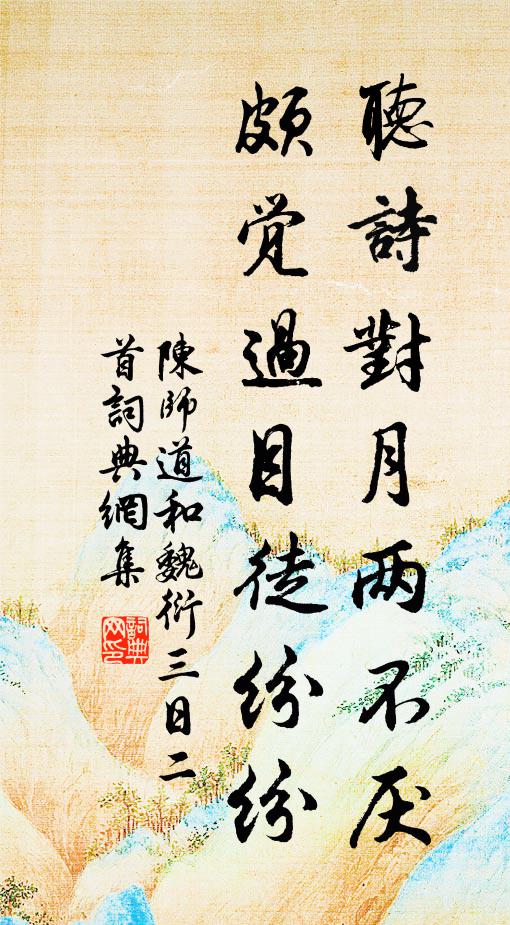 聽詩對月两不厌
頗覺過目徒紛紛
陳師道和魏衍三日二
首詞典網集
詞典网印